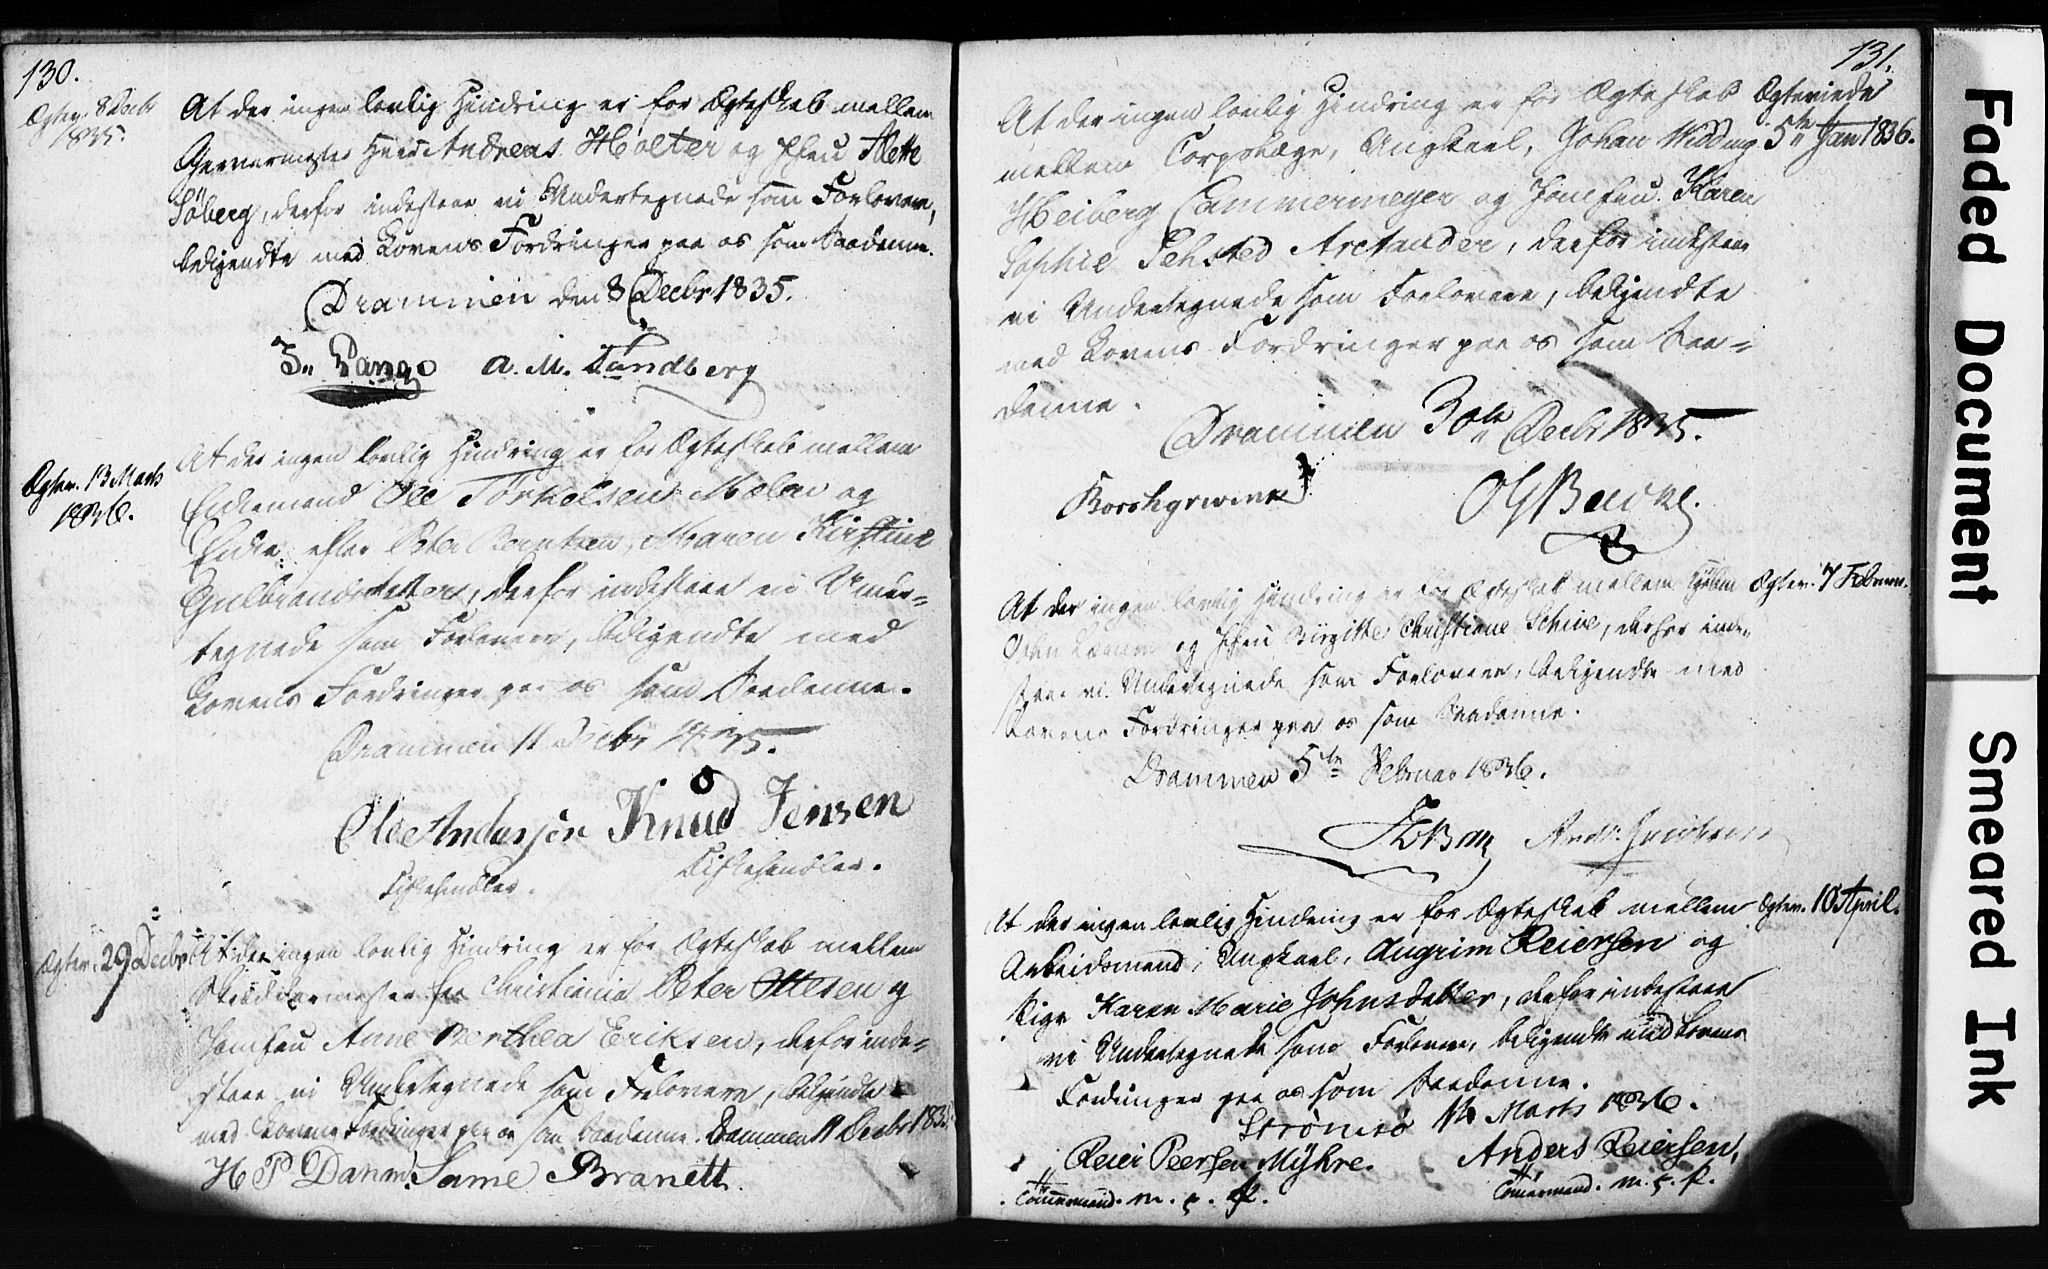 130.
Ægtev. 8 Decbr
1835.
At der ingen lovlig Hindring er for Ægteskab mellem
Garvermester Andreas Holter og Jfru Alette
Söberg, derfor indestaae vi Undertegnede som Forlovere,
bekjendte med Lovens Fordringer paa os som Saadanne.
Drammen den 8 Decbr 1835.
A. M. Tandberg
Ægtev. 13 Marts
1836.
At der ingen lovlig Hindring er for Ægteskab mellem
Enkemand Ole Torkelsen Molen og
Enke efter Peter Berntsen, Maren Kirstine
Gulbrandsdatter, derfor indestaae vi Under-
tegnede som Forlovere, bekjendte med
Lovens Fordringer paa os som Saadanne.
Drammen 11 Decbr 1835.
Ole Anderssen Knud Jensen
Ægtev. 29 Decbr
At der ingen lovlig Hindring er for Ægteskab mellem
Skræddermester fra Christiania Peter Ottesen og
Jomfru Anne Berthea Eriksen, derfor inde-
staae vi Undertegnede som Forlovere, bekjendte
med Lovens Fordringer paa os som Saadanne. Drammen 11 Decbr 1835.
H P Danm. Same Branett.
131.
Ægteviede
5te Jan 1836.
At der ingen lovlig Hindring er for Ægteskab
mellem Corpslæge, Ungkael, Johan Widding
Heiberg Cammermeyer og Jomfru Karen
Sophie Sehsted Arctander, derfor indestaae
vi Undertegnede som Forlovere, bekjendte
med Lovens Fordringer paa os som Saa-
danne.
Drammen 30te Decbr 1835.
Borchgrevink
Ægtev. 7 Februar.
At der ingen lovlig Hindring er for Ægteskab mellem
og Jfru Birgitte Christiane Schive, derfor inde-
staae vi Undertegnede som Forlovere, bekjendte med
Lovens Fordringer paa os som Saadanne.
Drammen 5te Februar 1836.
Ægtev. 10 April.
At der ingen lovlig Hindring er for Ægteskab mellem
Arbeidsmand, Ungkael, Augrim Reiersen og
Pige Karen Marie Johnsdatter, derfor indestaae
vi Undertegnede som Forlovere, bekjendte med Lovens
Fordringer paa os som Saadanne.
Strömsö Marts 1836.
Reier Peersen Myhre. Anders Reiersen,
Tömmermand. m. p. P. Tömermand. m. p. P.
Faded Document
Smeared Ink